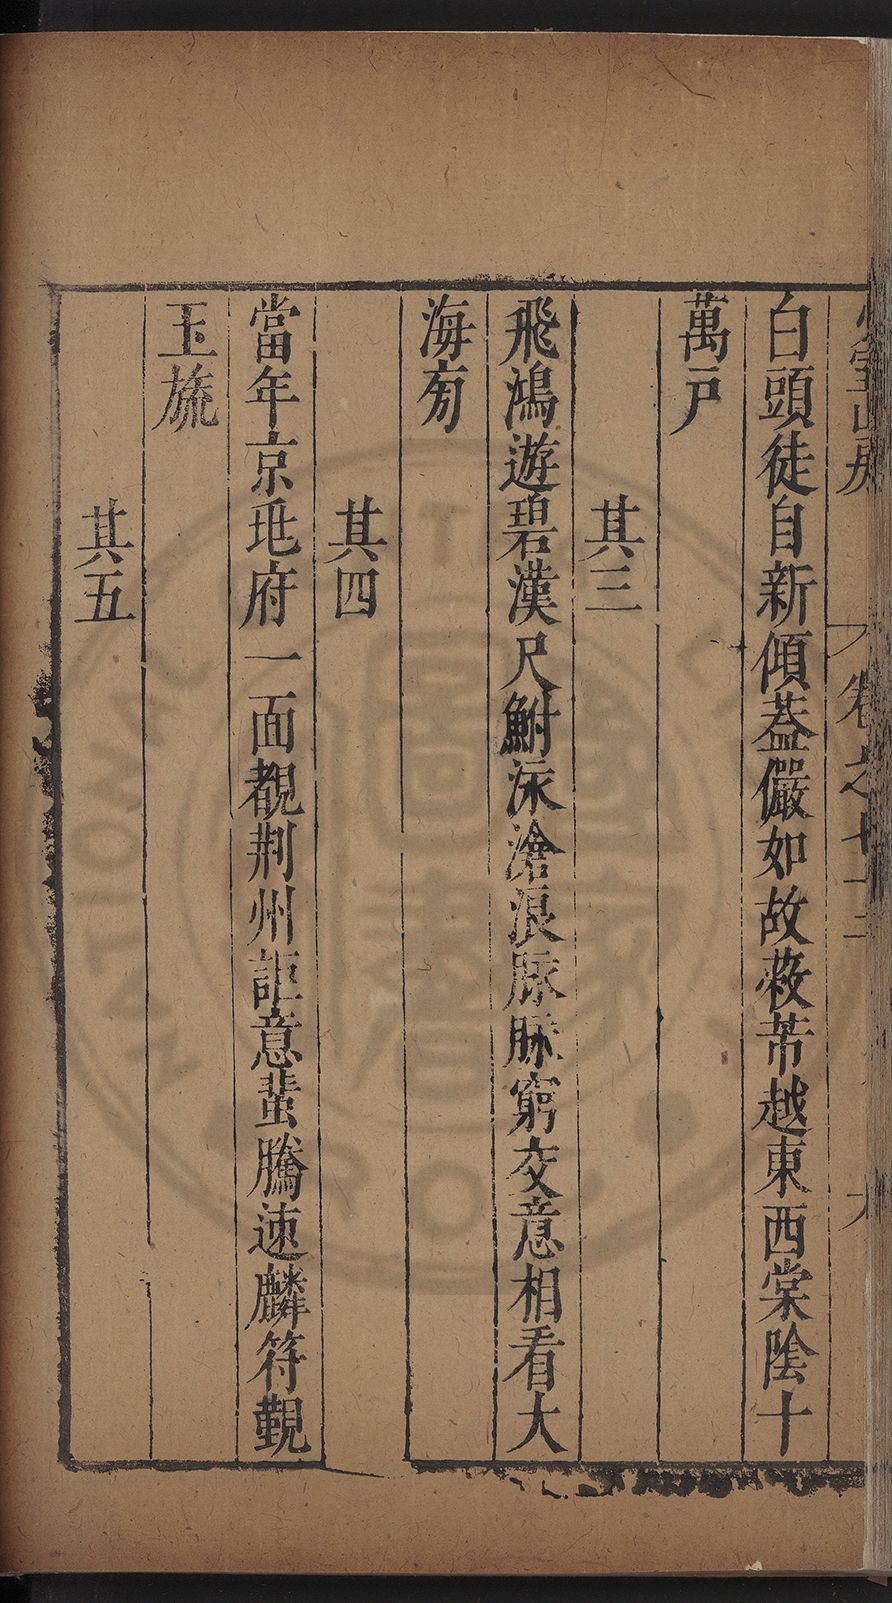 室山房 卷之七十
白頭徒自新傾蓋儼如故蔽芾越東西棠陰十
萬戶
其三
飛鴻遊碧漢尺鮒泳滄浪脉脉窮交意相看大
海旁
其四
當年京兆府一面覩荆州詎意蜚騰速麟符覲
玉旒
其五